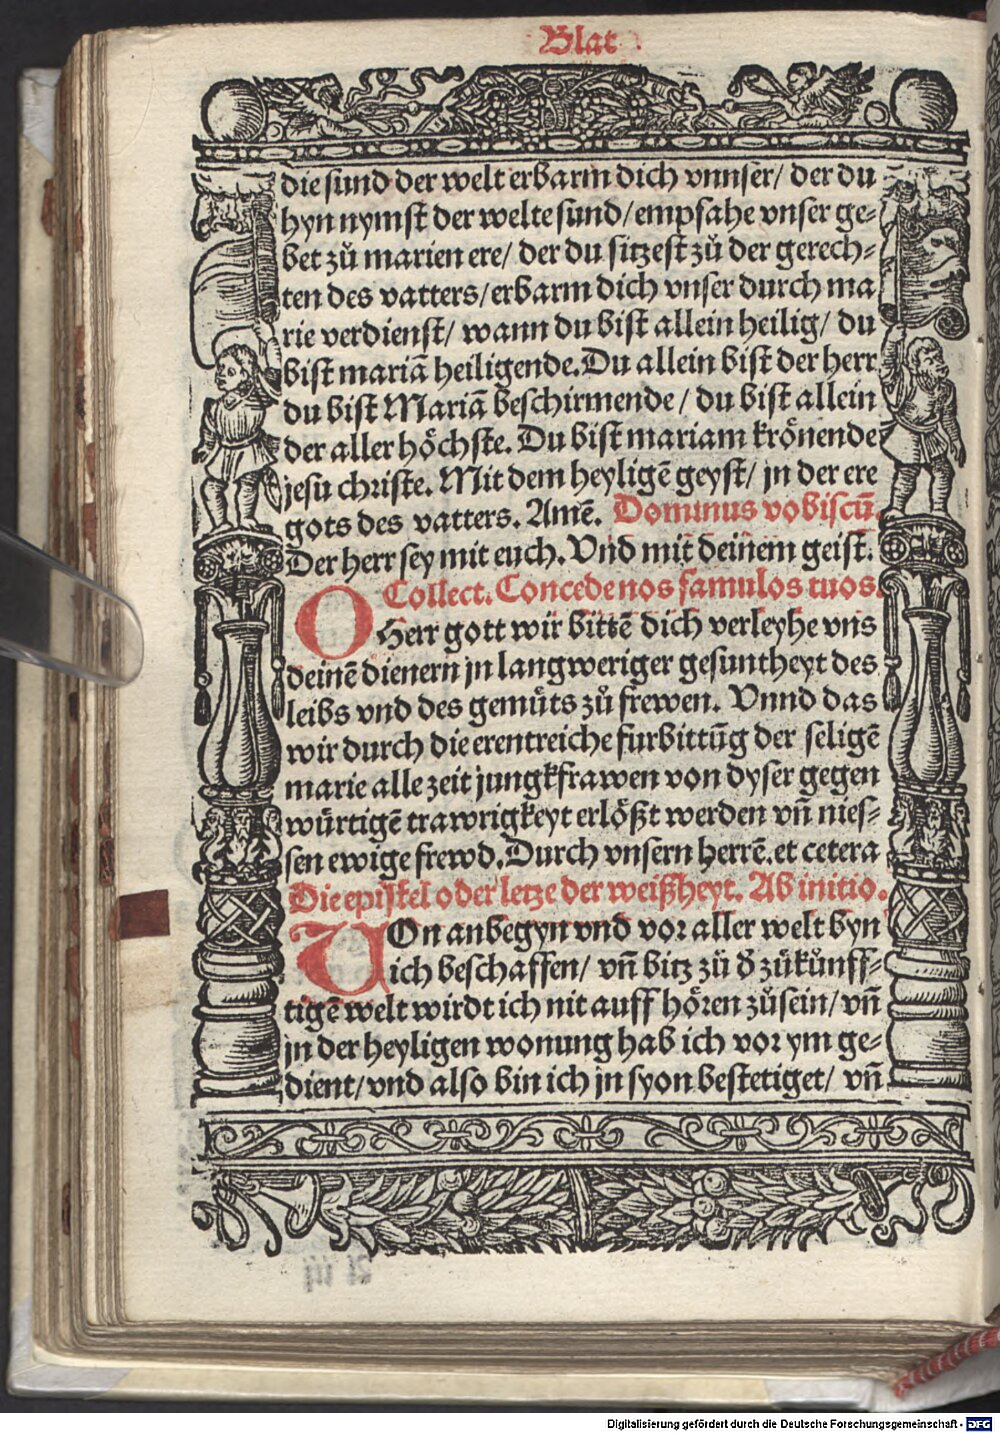 Blat
die sund der welt erbarm dich vnnser/ der du
hyn nymst der welte sund/empfahe vnser ge⸗
bet zů marien ere/ der du sitzest zů der gerech⸗
ten des vatters/erbarm dich vnser durch ma
rie verdienst/ wann du bist allein heilig/ du
bist mariā heiligende. Du allein bist der herr
du bist Mariā beschirmende/ du bist allein
der aller hőchste. Du bist mariam krőnende
jesu christe. Mit dem heyligē geyst/ jn der ere
gots des vatters. Amē. Dominus vobiscū.
Der herr sey mit euch. Vnd mit deinem geist.
Collect. Concede nos famulos tuos.
O Herr gott wir bittē dich verleyhe vns
deinē dienern jn langweriger gesuntheyt des
leibs vnd des gemüts zů frewen. Vnnd das
wir durch die erentreiche furbittūg der seligē
marie alle zeit jungkfrawen von dyser gegen
würtigē trawrigkeyt erlőßt werden vn̄ nies⸗
sen ewige frewd. Durch vnsern herrē. et cetera
Die epistel oder letze der weißheyt. Ab initio.
VOn anbegyn vnd vor aller welt byn
ich beschaffen/ vn̄ bitz zü d̕ zükůnff⸗
tigē welt wirdt ich nit auff hőren zůsein/ vn̄
jn der heyligen wonung hab ich vor ym ge⸗
dient/vnd also bin ich jn syon bestetiget/ vn̄
Digitalisierung gefördert durch die Deutsche Forschungsgemeinschaft - DFG